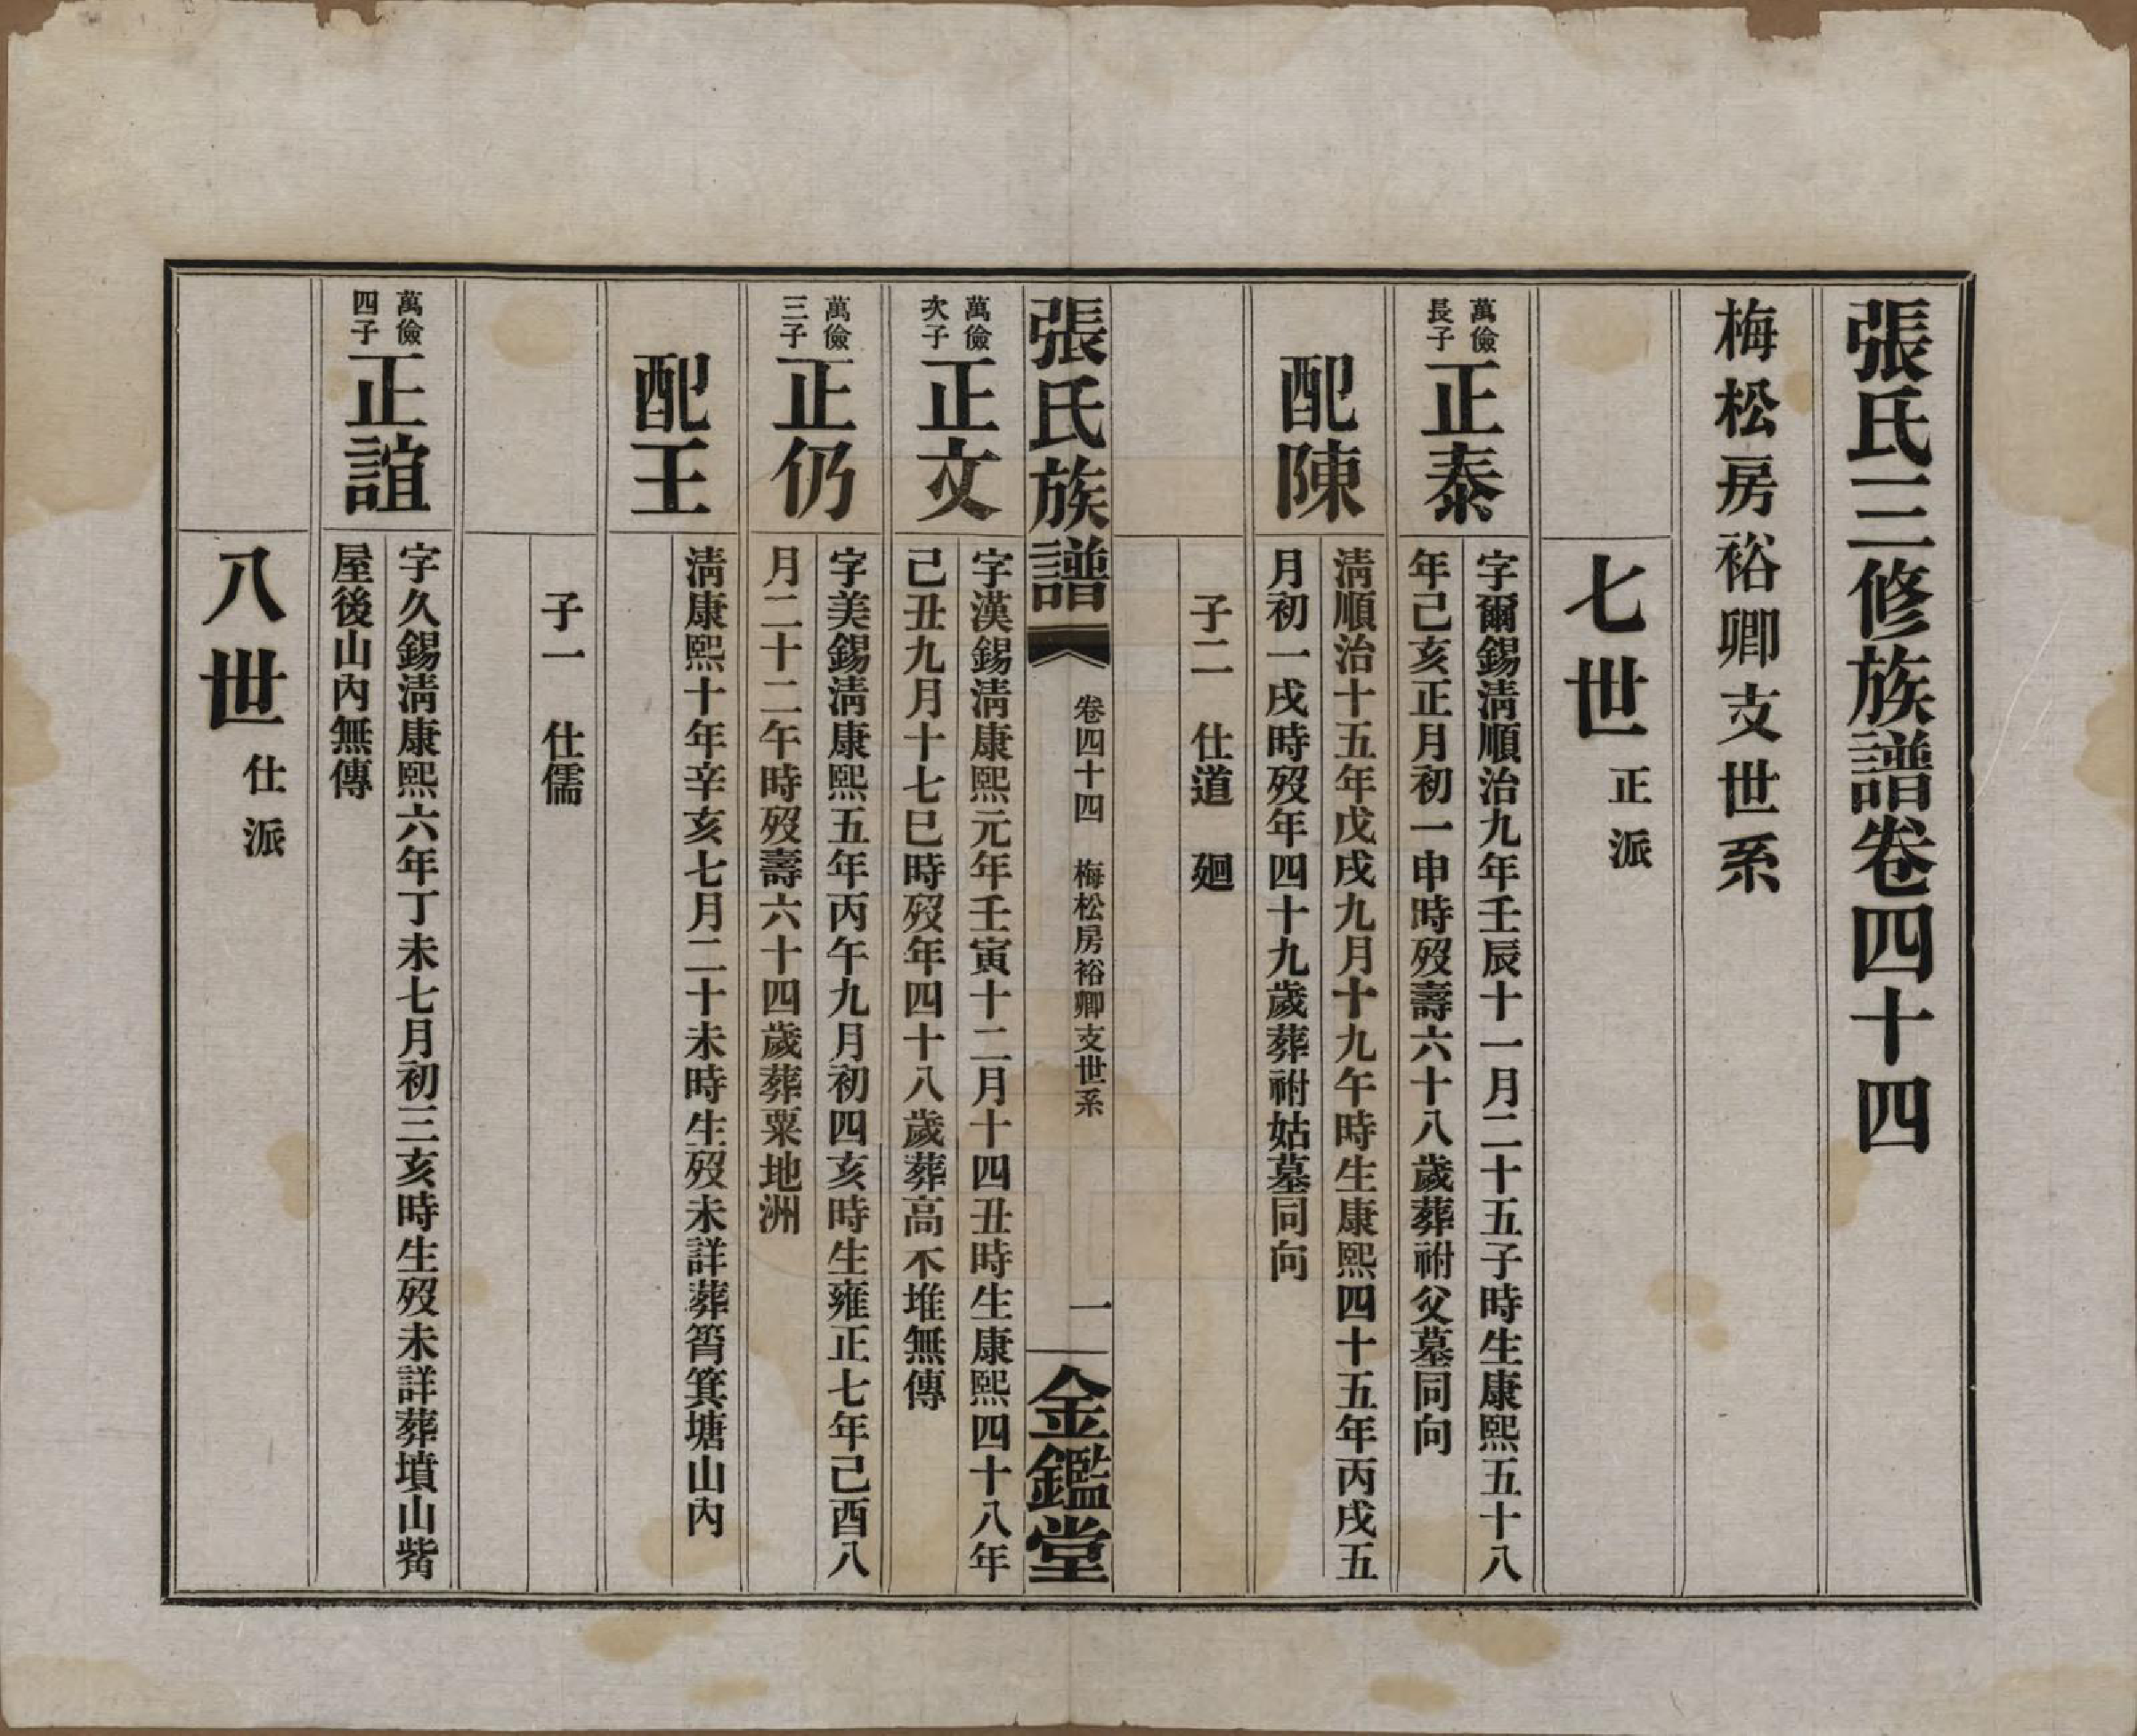 張氏三修族譜卷四十四
梅松房裕卿支世系
七世 正派
萬儉
長子
正泰
字爾錫淸順治九年壬辰十一月二十五子時生康熙五十八
年己亥正月初一申時歿壽六十八歲葬祔父墓同向
配陳
淸順治十五年戊戌九月十九午時生康熙四十五年丙戌五
月初一戌時歿年四十九歲葬祔姑墓同向
子二 仕道 廻
張氏族譜 卷四十四 梅松房裕卿支世系 一 金鑑堂
萬儉
次子
正文
字漢錫淸康熙元年壬寅十二月十四丑時生康熙四十八年
己丑九月十七巳時歿年四十八歲葬高不堆無傳
萬儉
三子
正仍
字美錫淸康熙五年丙午九月初四亥時生雍正七年己酉八
月二十二午時歿壽六十四歲葬粟地洲
配王
淸康熙十年辛亥七月二十未時生歿未詳葬筲箕塘山內
子一 仕儒
萬儉
四子
正誼
字久錫淸康熙六年丁未七月初三亥時生歿未詳葬墳山觜
屋後山內無傳
八世 仕派